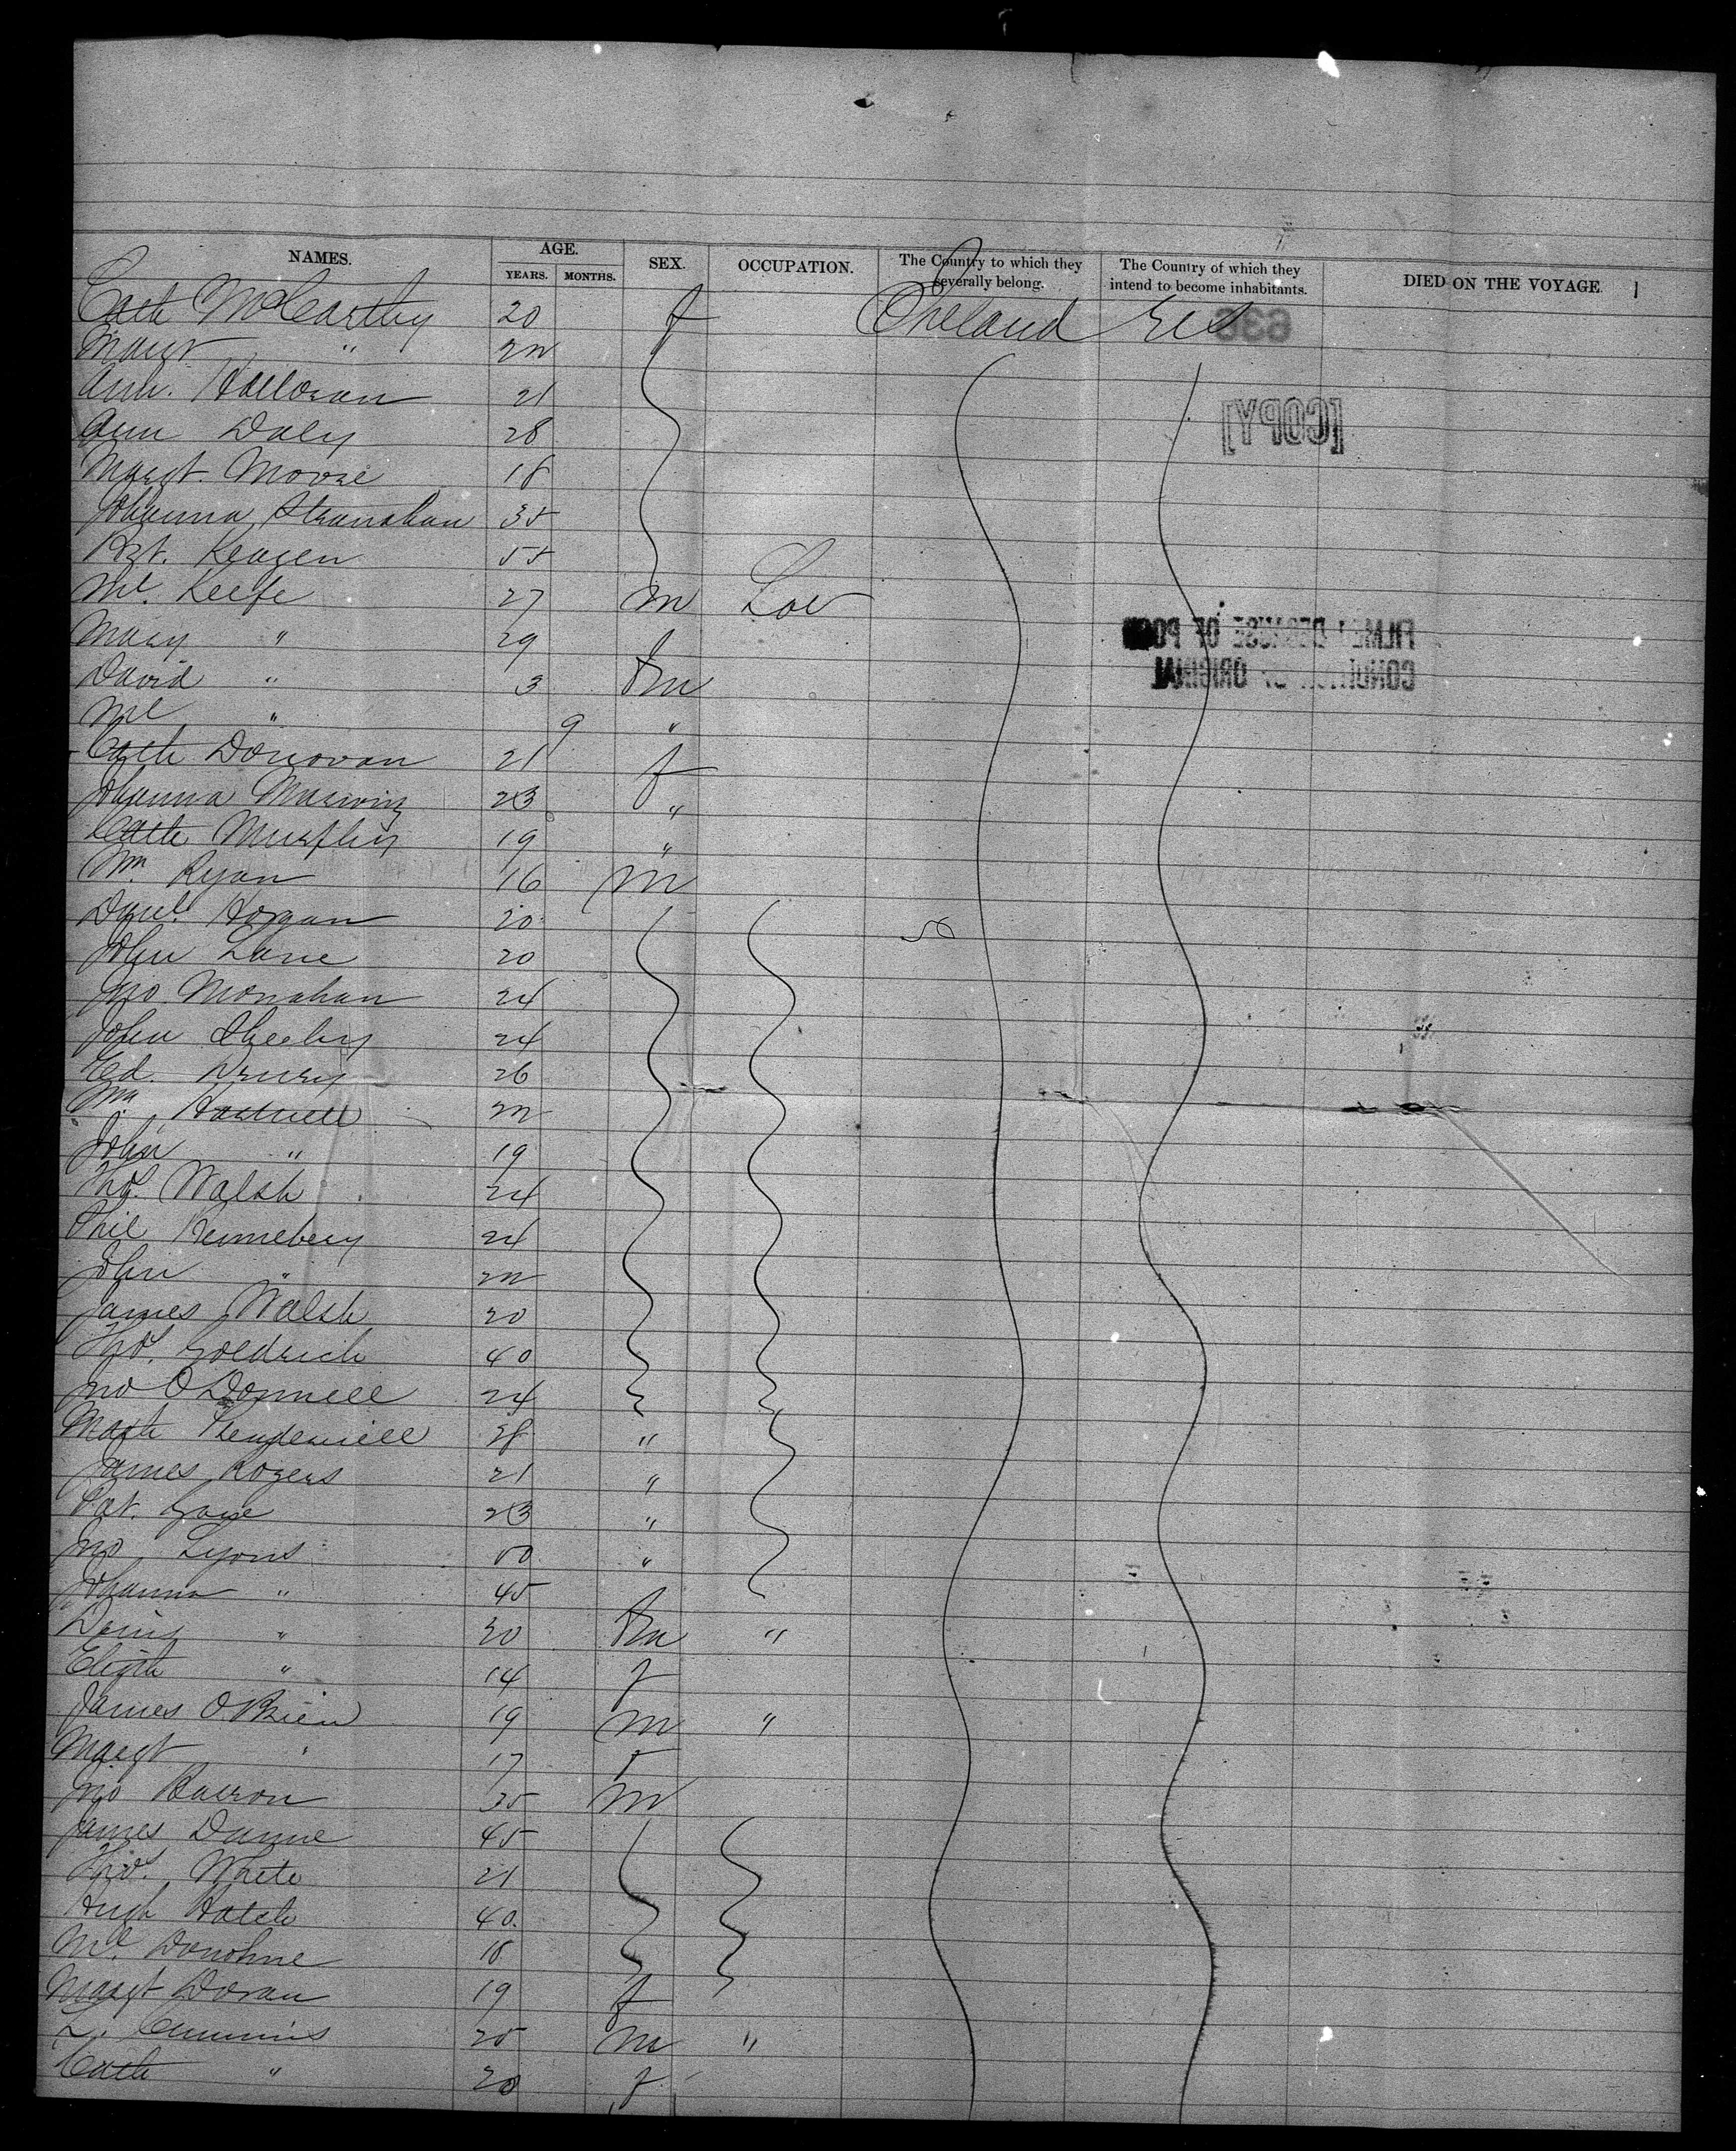 NAMES. AGE. SEX. OCCUPATION. The Country to which they severally belong. The Country of which they intend to become inhabitants. DIED ON THE VOYAGE.
YEARS. MONTHS.
Cath McCarthy 20 f Ireland U S
Margt " 22
Ann. Halloran 21
Ann Daly 28
Margt. Moore 18
Johanna Shanahan 35
Keagen 55
Ml. Keefe 27 m Lab
Mary " 29
David " 3 m
Ml " 9 "
Cath Donovan 21 f
Johanna 23 "
Cath Murphy 19 "
Wm Ryan 16 m
Danl. Horgan 20
John Lane 20
Jno Monahan 24
John Sheehy 24
Ed. Drury 26
Wm Hartnell 22
John " 19
Thos. Walsh 24
Phil Hennebery 24
John " 22
James Walsh 20
Thos. Goldrich 40
Jno O'Donnell 24
Math 28 "
James Rogers 21 "
Pat. 23 "
Jno Lyons 50 "
Johanna " 45
Denis " 20 m "
Elizth " 14 f
James OBrien 19 m "
Margt " 17 f
Jno Barron 35 m
James Dunne 45
Thos. White 21
Hugh 40
Ml Donohue 18
Margt Doran 19 f
L. Cummins 25 m "
Cath " 20 f
[COPY]
FILMED BECAUSE OF POOR
CONDITION OF ORIGINAL